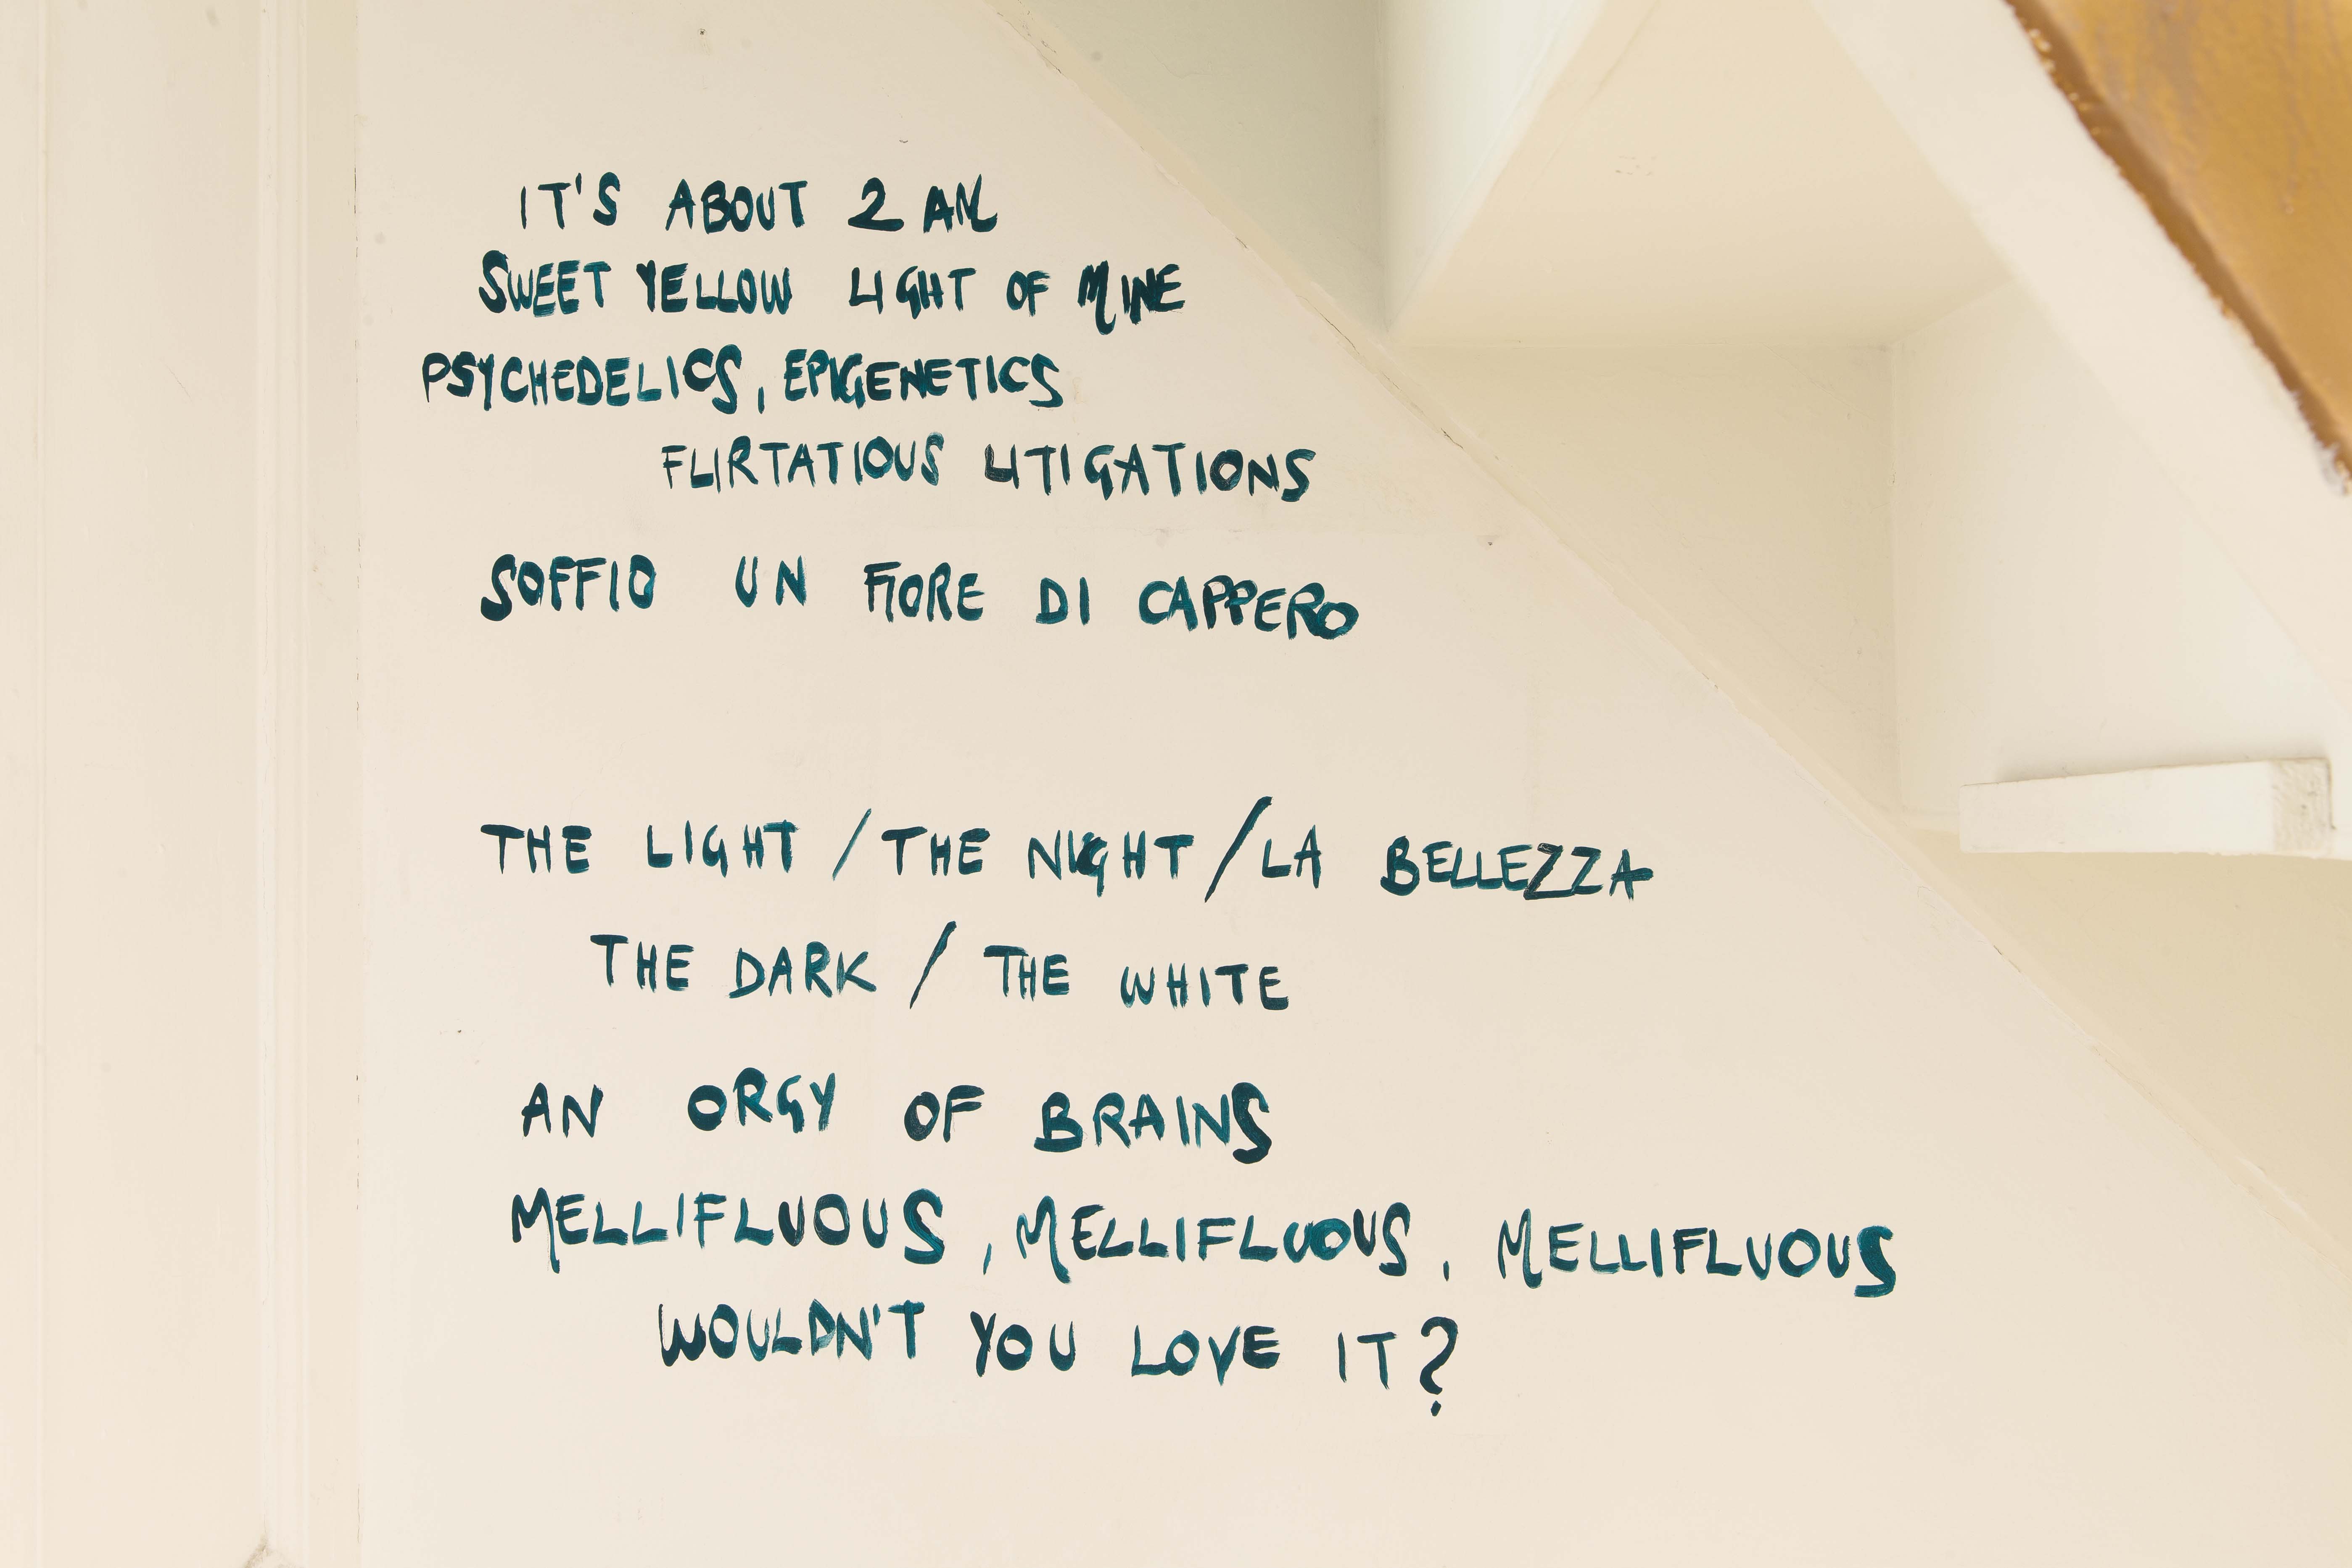 IT'S ABOUT 2 AM
SWEET YELLOW LIGHT OF MINE
PSYCHEDELICS, EPIGENETICS
FLIRTATIOUS LITIGATIONS
SOFFIO UN FIORE DI CAPPERO
THE LIGHT / THE NIGHT / LA BELLEZZA
THE DARK / THE WHITE
AN ORGY OF BRAINS
MELLIFLUOUS, MELLIFLUOUS, MELLIFLUOUS
WOULDN'T YOU LOVE IT?